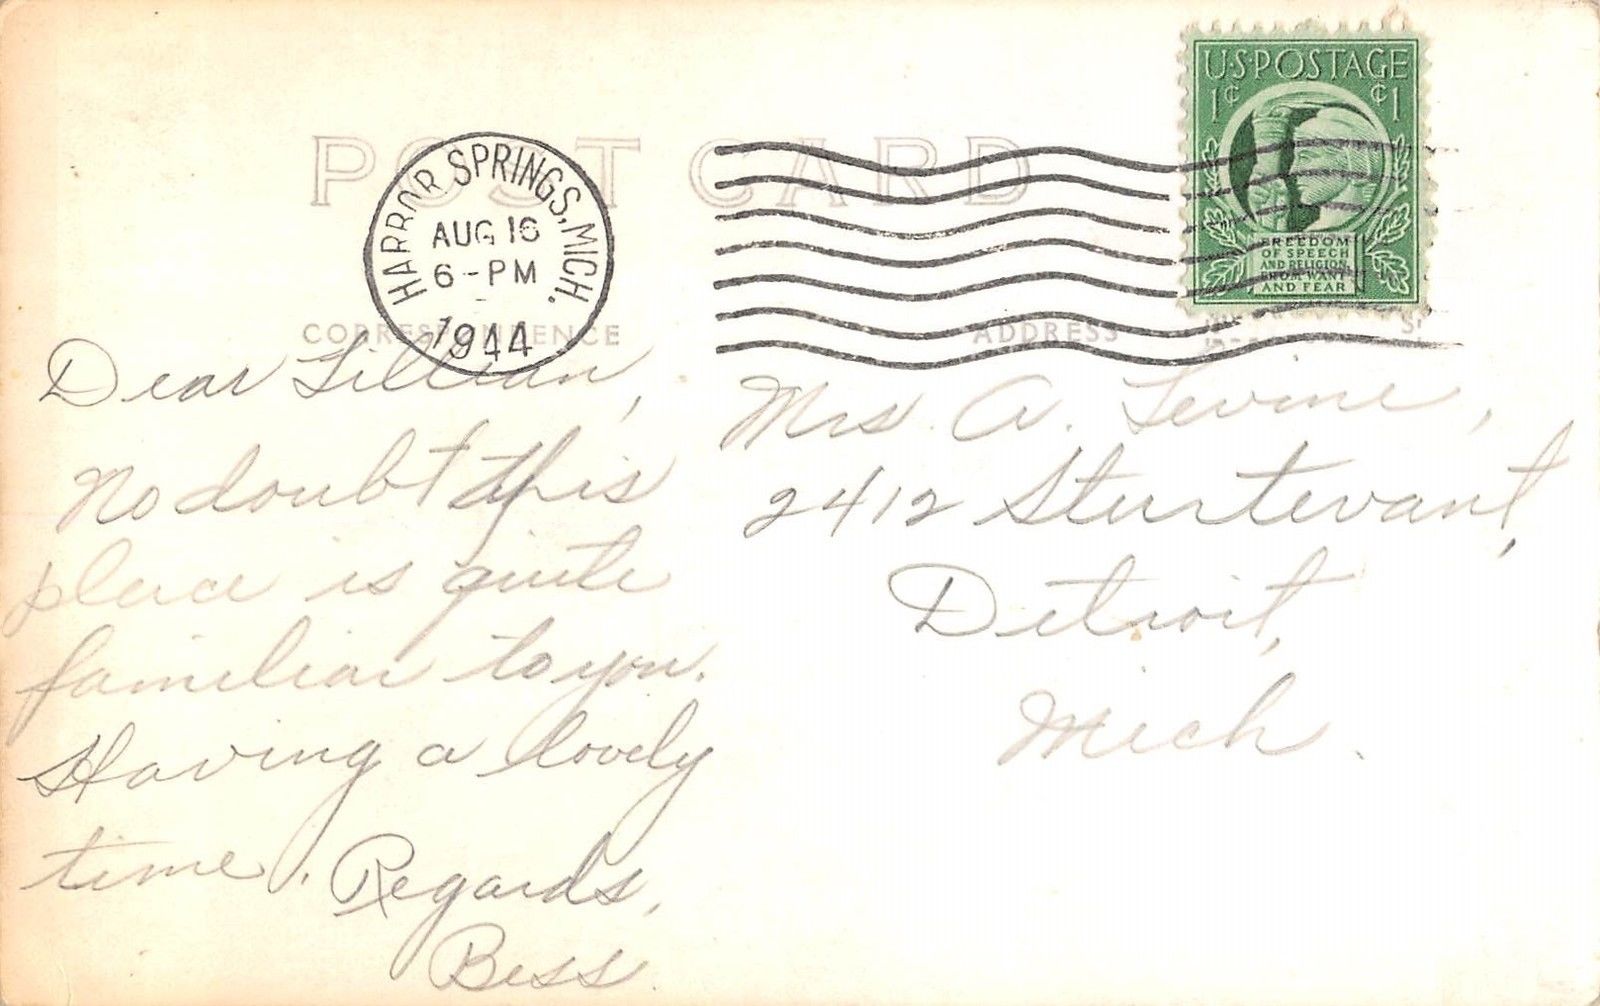 POST CARD
HARBOR SPRINGS, MICH.
AUG 16
6-PM
1944
U.S. POSTAGE
1¢ ¢1
FREEDOM
OF SPEECH
AND RELIGION,
FROM WANT
AND FEAR
CORRESPONDENCE
ADDRESS
Dear Lillian,
No doubt this
place is quite
familiar to you.
Having a lovely
time. Regards,
Bess
Mrs. A. Levine,
2412 Sturtevant,
Detroit,
Mich.